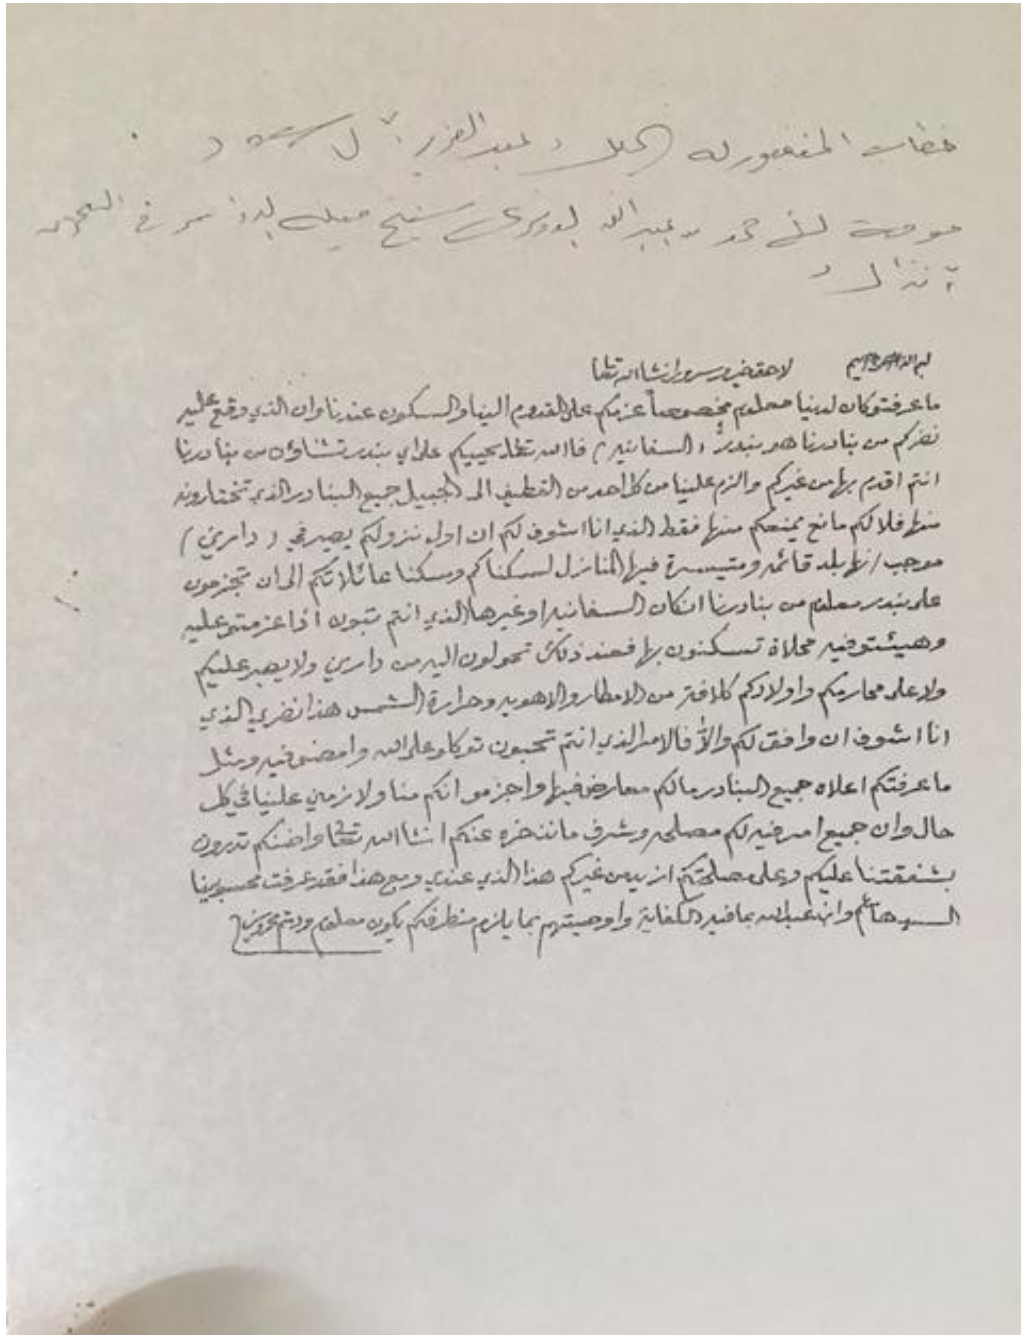 خطاب المغفور له الملك عبدالعزيز آل سعود
موجه لـ محمد بن عبدالله الدوسري شيخ قبيلة الدواسر في البحرين
آنذاك
بسم الله الرحمن الرحيم لاحقه خير وسرور انشاالله تعالى
ما عرفتو كان لدينا معلوم مخصوصاً عزمكم على القدوم الينا والسكون عندنا وان الذي وقع عليه
نضركم من بنادرنا هو بندر (السفانيه) فاالله تعالى يحييكم على اي بندر تشاؤه من بنادرنا
انتم اقدم بها من غيركم والزم علينا من كل احد من القطيف الى الجبيل جميع البنادر الذي تختارونه
منها فلا لكم مانع يمنعكم منها فقط الذي انا اشوف لكم ان اول نزولكم يصير في (دارين)
موجب انها بلد قائمه ومتيسرة فيها المنازل لسكناكم وسكنا عائلاتكم الى ان تجزمون
على بندر معلوم من بنادرنا انكان السفانيه او غيرها الذي انتم تبون اذا عزمتو عليه
وهيئتو فيه محلاة تسكنون بها فعند ذلك تحولون اليه من دارين ولا يصير عليكم
ولا على محارمكم واولادكم كلافة من الامطار والاهويه وحرارة الشمس هذا نضري الذي
انا اشوف ان وافق لكم والا فالامر الذي انتم تحبون توكلو على الله وامضو فيه ومثل
ما عرفتكم اعلاه جميع البنادر مالكم معارض فيها واجزمو انكم منا ولازمين علينا في كل
حال وان جميع امر فيه لكم مصلحه وشرف ما نذخره عنكم انشاالله تعالى واضنكم تدرون
بشفقتنا عليكم وعلى مصلحتكم ازيد من غيركم هذا الذي عندي ومع هذا فقد عرفت محسوبينا
السيد هاشم وابن عبدالله بما فيه الكفاية واوصيتهم بما يلزم منطرفكم يكون معلوم ودمتم محروسين